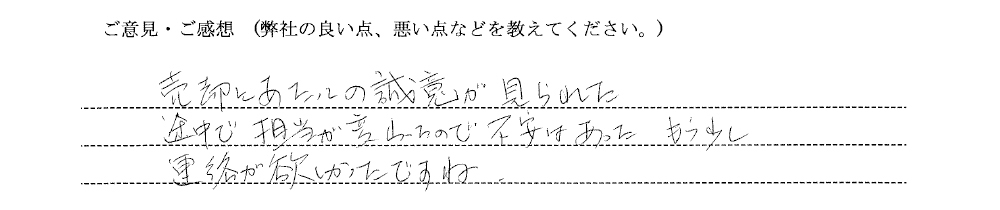 ご意見・ご感想 (弊社の良い点、悪い点などを教えてください。)
売却にあたっての誠意が見られた
途中で担当が変わったので不安はあった もう少し
連絡が欲しかったですね.